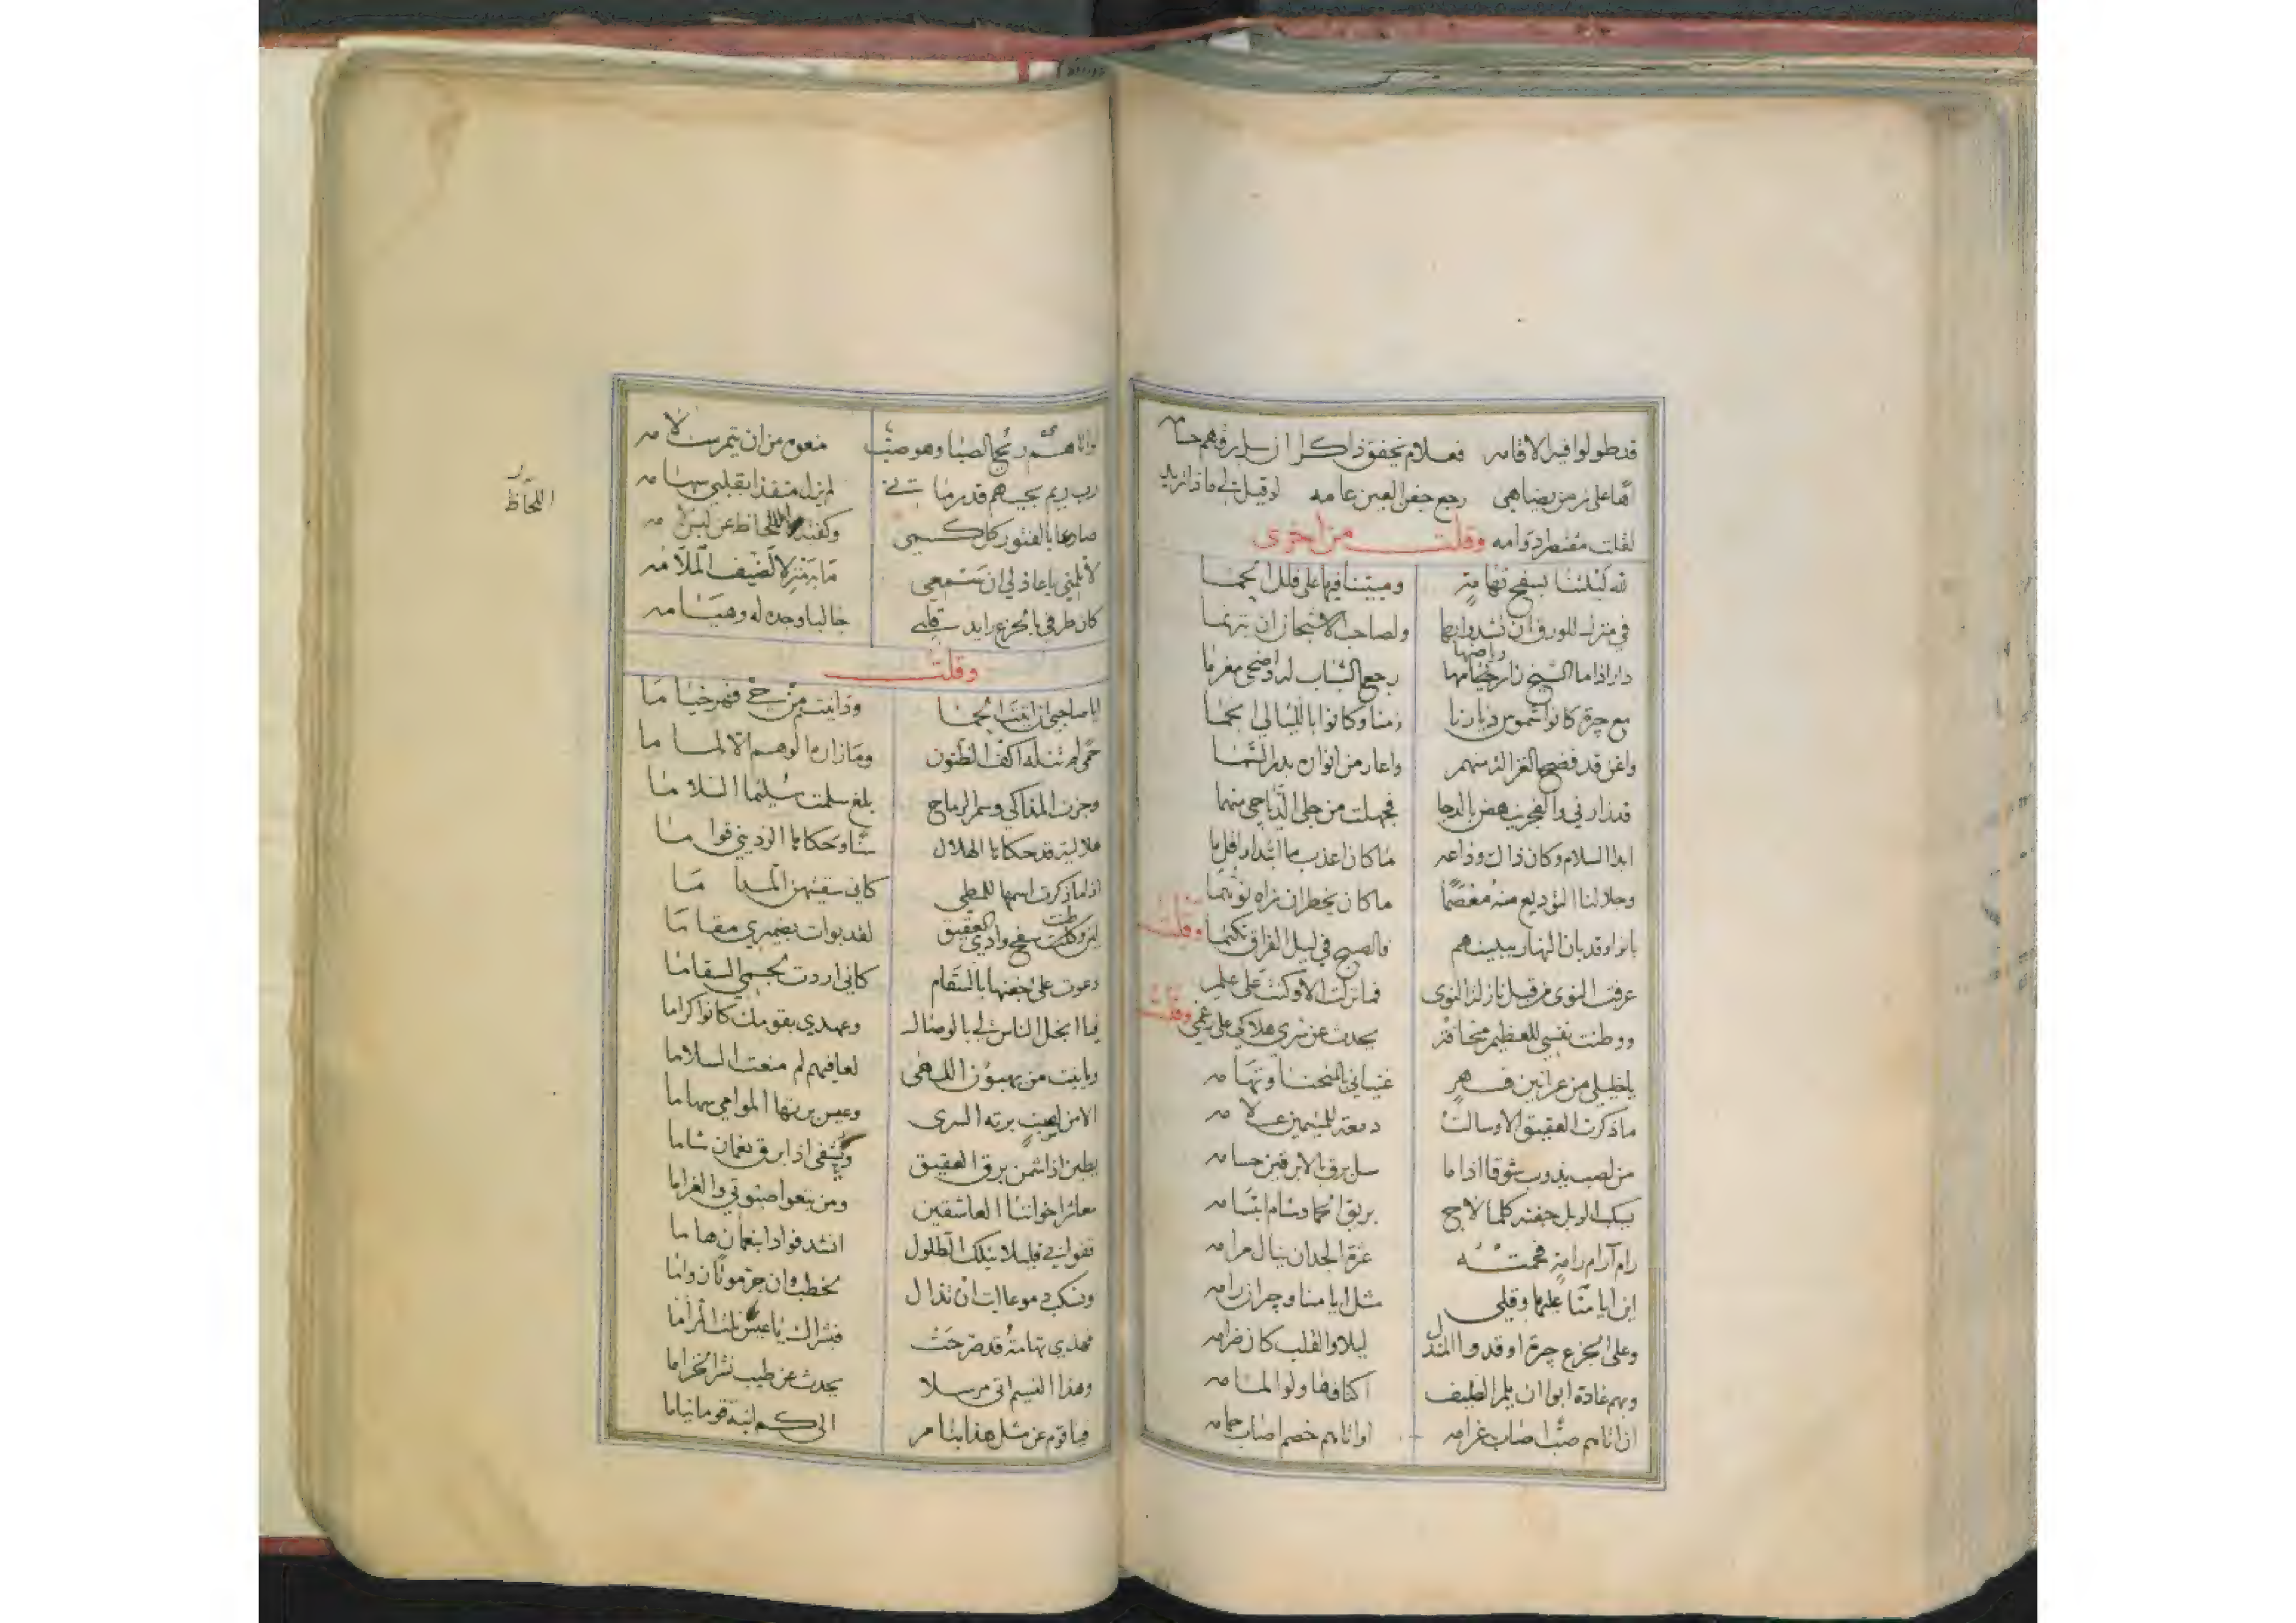 قد طولوا فيه الاقامه فعلام تخفق ذاكرا ان سل برقهم حسامه
آها على زمن بضاهى رجع جفن العين عامه لو قيل لي ماذا تريد
لقلت مقتطرا دوامه وقلت من اخرى
لله ليلتنا بسفح تهامة ومبيتنا فيها على قلل الحما
في منزل للورق ان تشدوا بها ولصاحب الاشجان ان يترنما
دار اذا ما الشيخ زار خيامها رياضها رجع الشباب له واضحى مغرما
مع جيرة كانوا شموس ديارنا زمنا وكانوا بالليالي انجما
واغن قد فضح الغزالة منهم واعار من انواره بدر السما
قد زارني والفجر ينهض بالدجا فجهلت من جلى الدياجي منهما
ابدا السلام وكان ذاك وداعه ما كان اعذب ما ابتدا واقل ما
وجلا لنا التوديع منه معصما ما كان يخطر ان نراه توهما
بانوا وقد بان النهار ببينهم فالصبح في ليل الفراق تكتما وقلت
عرفت النوى من قبل نازلة النوى فما نزلت الا وكنت على علم
ووطنت نفسي للعظيم مخافة يحدث عن سري هلاكي على رغمي وقلت
يا خليلي من عرانين فهر غنياني بالمنحنا وتهامه
ما ذكرت العقيق الا وسالت دمعة للمتيمين علامه
من لصب يذوب شوقا اذا ما سل برق بالابرقين حسامه
يسبك الوبل جفنه كلما لاح بريق الحما وشام ابتسامه
رام آرام رامة فحمته عزة الجدان ينال مرامه
اين ايامنا عليها وقلبي مثل ايامنا وجيران رامه
وعلى الجزع جيرة اوقدوا المندل ليلا والقلب كان ضرامه
وبهم غادة ابوا ان يلم الطيف اكنافها ولو المامه
ان اتاهم صبا اصاب غرامه او اتاهم خصم اصاب حمامه
واذا هم ريح الصبا وهو صب منعوه من ان يتم سلامه
رب ريم بحيهم قد رماني لم يزل منفذا بقلبي سهامه
صادعا بالفتور كل كمي وكفته اللحاظ عن لبس لامه
اللحاظ
لا تلمني يا عاذلي ان سمعي ما به منزل لضيف الملامه
كان طرفي بالجزع رايد قلبي جالبا وجده له وهيامه
وقلت
ايا صاحبي ان اتيت الحما ودانيت من حي فهر خياما
حمى لم تنله اكف الظنون وما زاره الوهم الا لماما
وجزت المذاكي وسمر الرماح بلغ سلمت سليما السلاما
هلالية قد حكاها الهلال سنا وحكاها الرديني قواما
اذا ما ذكرت اسمها للمطي كاني سقيتهن المداما
لئن وطنت سفح وادي العقيق لقد بوأت بضميري مقاما
دعوت على جفنها بالسقام كاني اردت بجسمي السقاما
فيا ابخل الناس لي بالوصال وعهدي بقومك كانوا كراما
الا من لعيني برته السرى وعيس برتها الموامي سهاما
يطين اذا شمن برق العقيق ويشفى اذا برق نعمان شاما
معاشر اخواننا العاشقين ومن تبعوا صبوتي والغراما
وتسكب دموعا ابت ان تذال
فهذي تهامة قد صرحت فبشراك يا عيس نلت المراما
وهذا النسيم اتى مرسلا يحدث عن طيب نشر الخزاما
فيا قوم عن مثل هذا ينام الى كم انبه قوما نياما